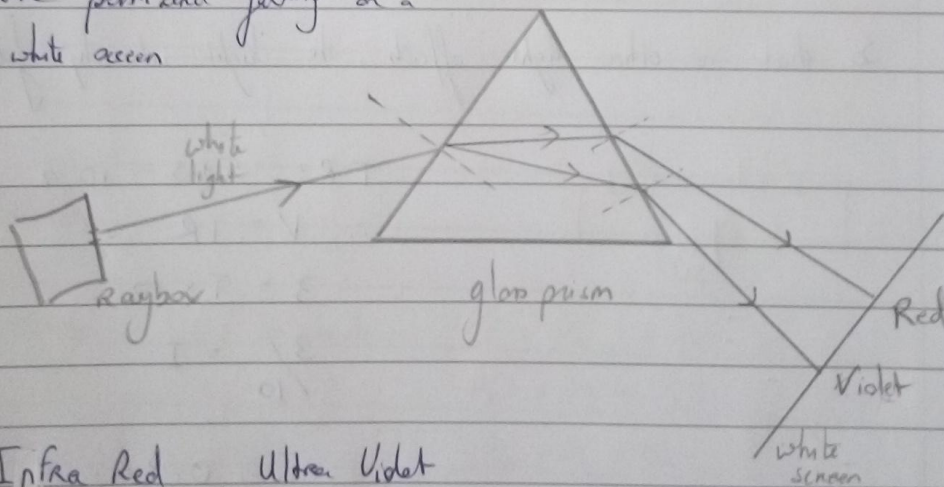 a
white screen
white
light
Raybox
glass prism
Red
Violet
white
screen
Infra Red Ultra Violet